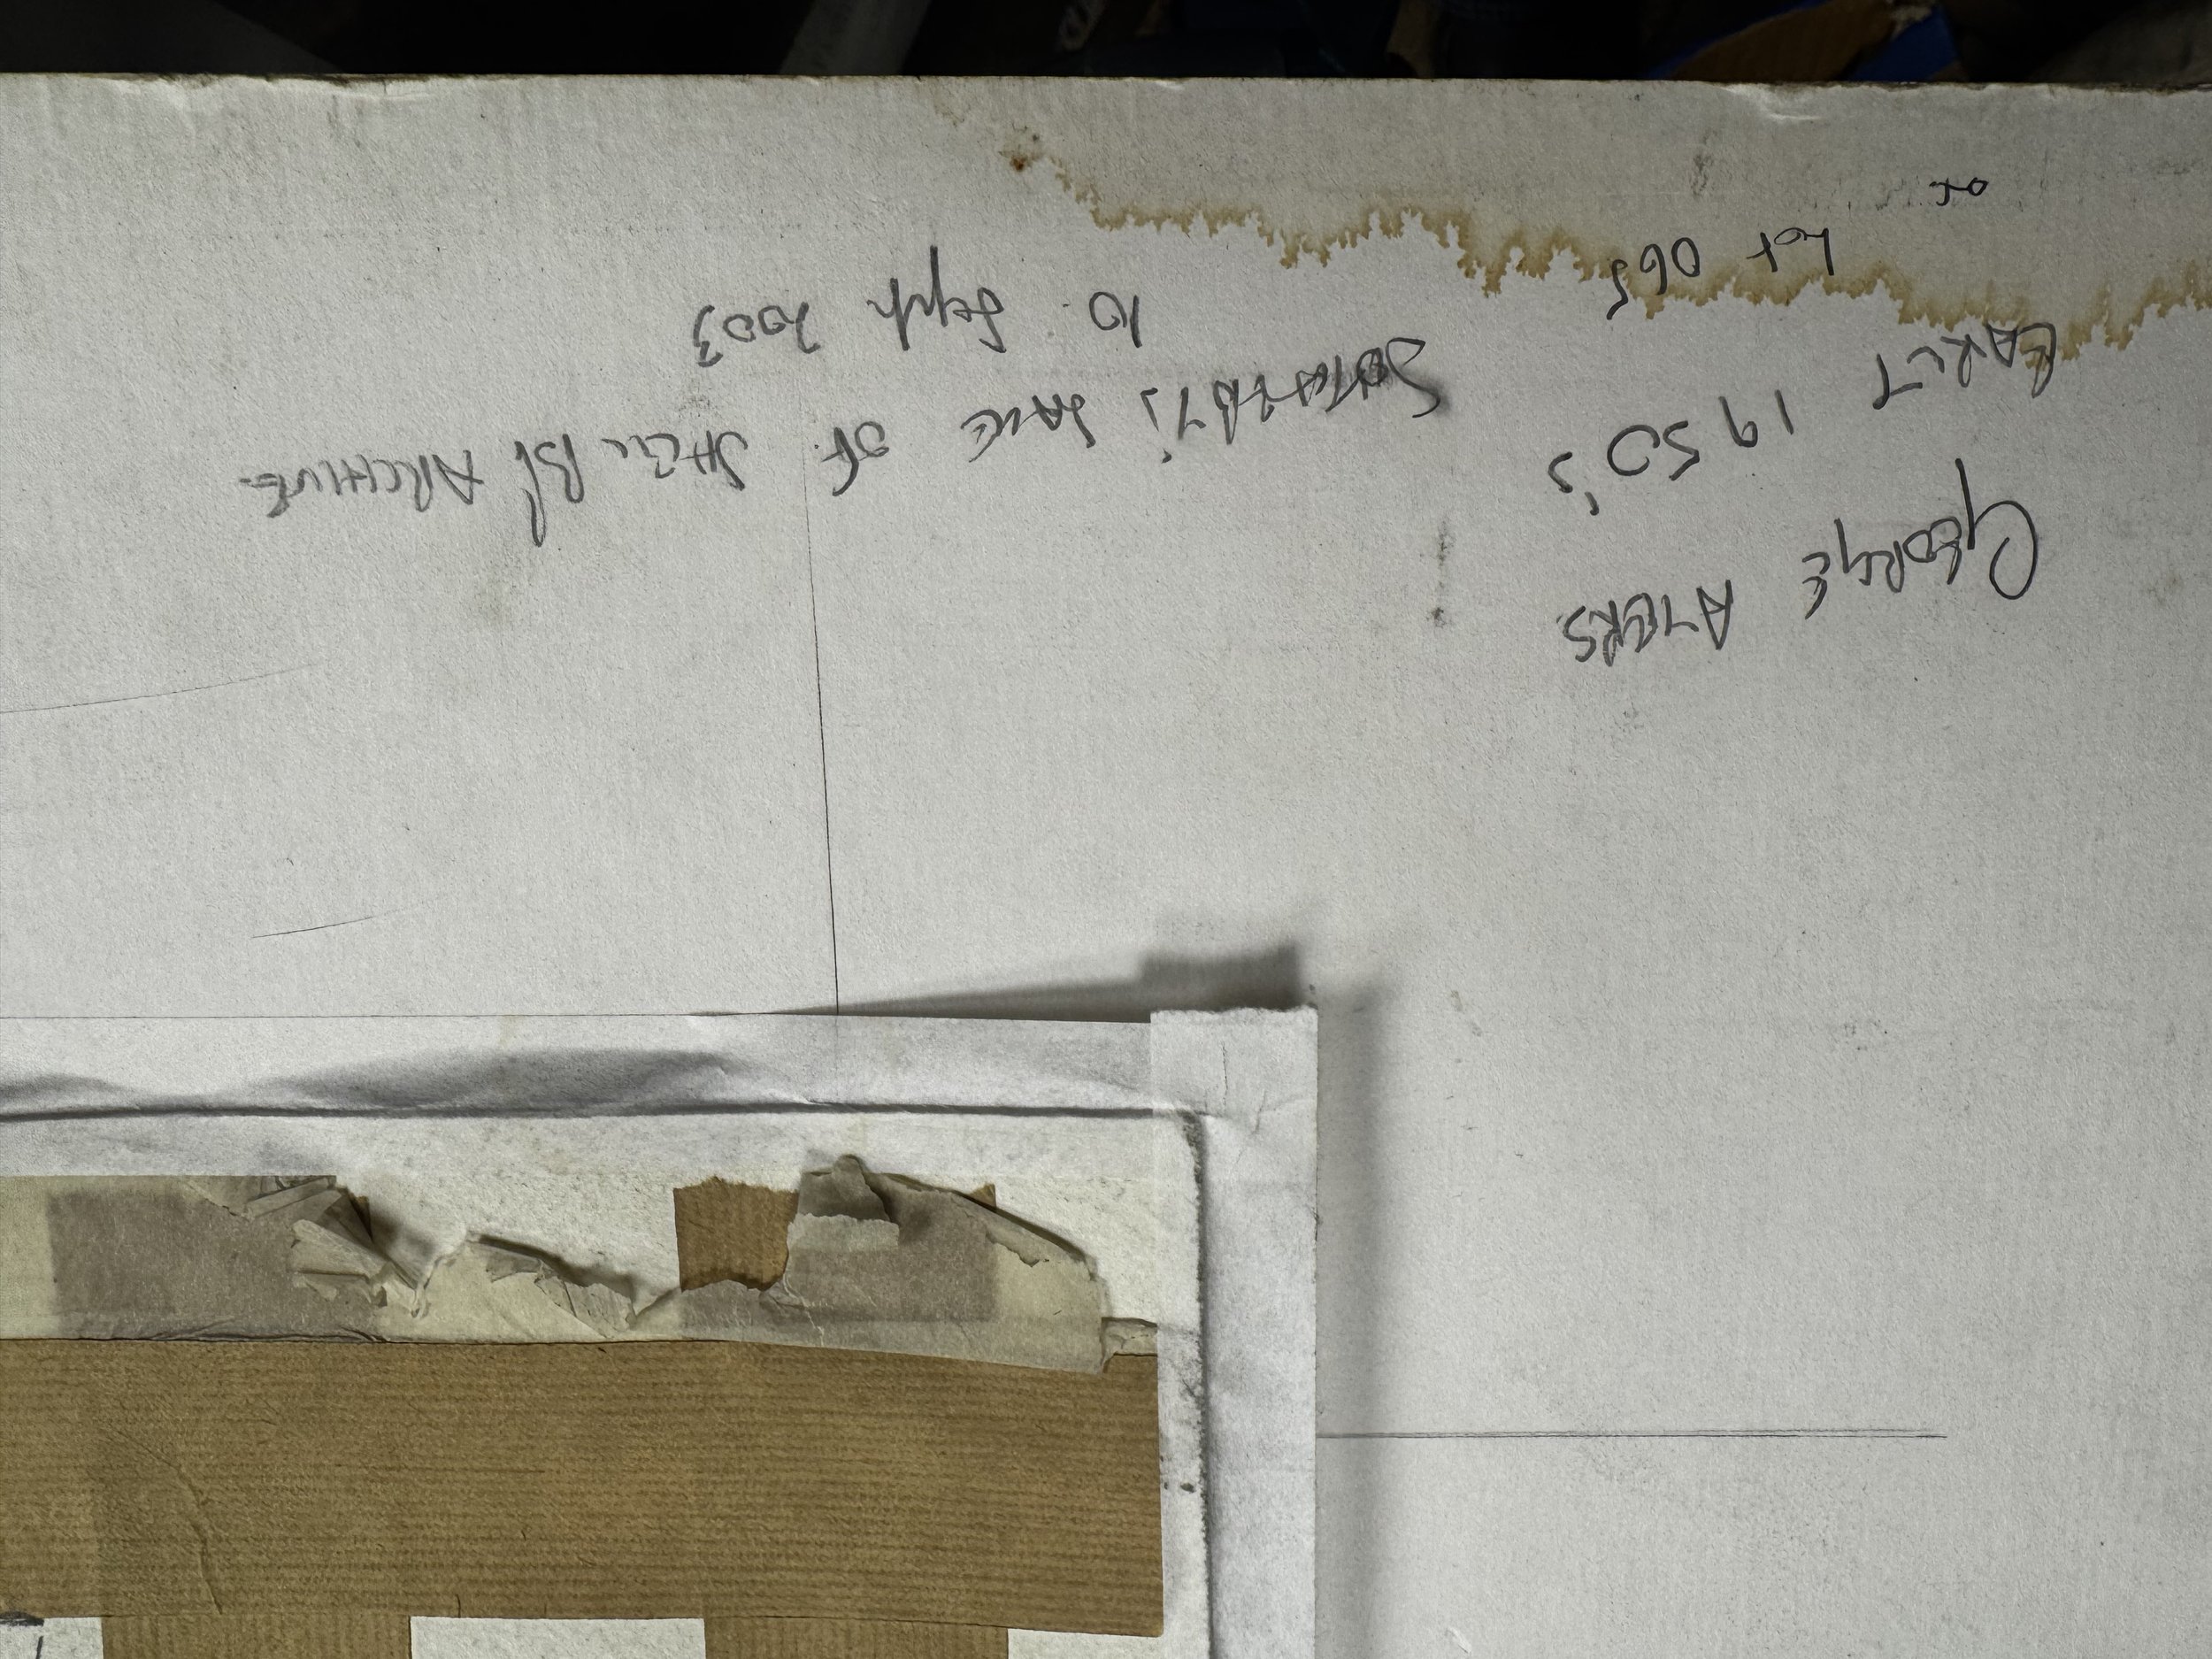 GEORGE AYERS
EARLY 1950's
SOTHEBY'S SALE OF SHELL BP ARCHIVE
10 Sept 2003
Lot 065